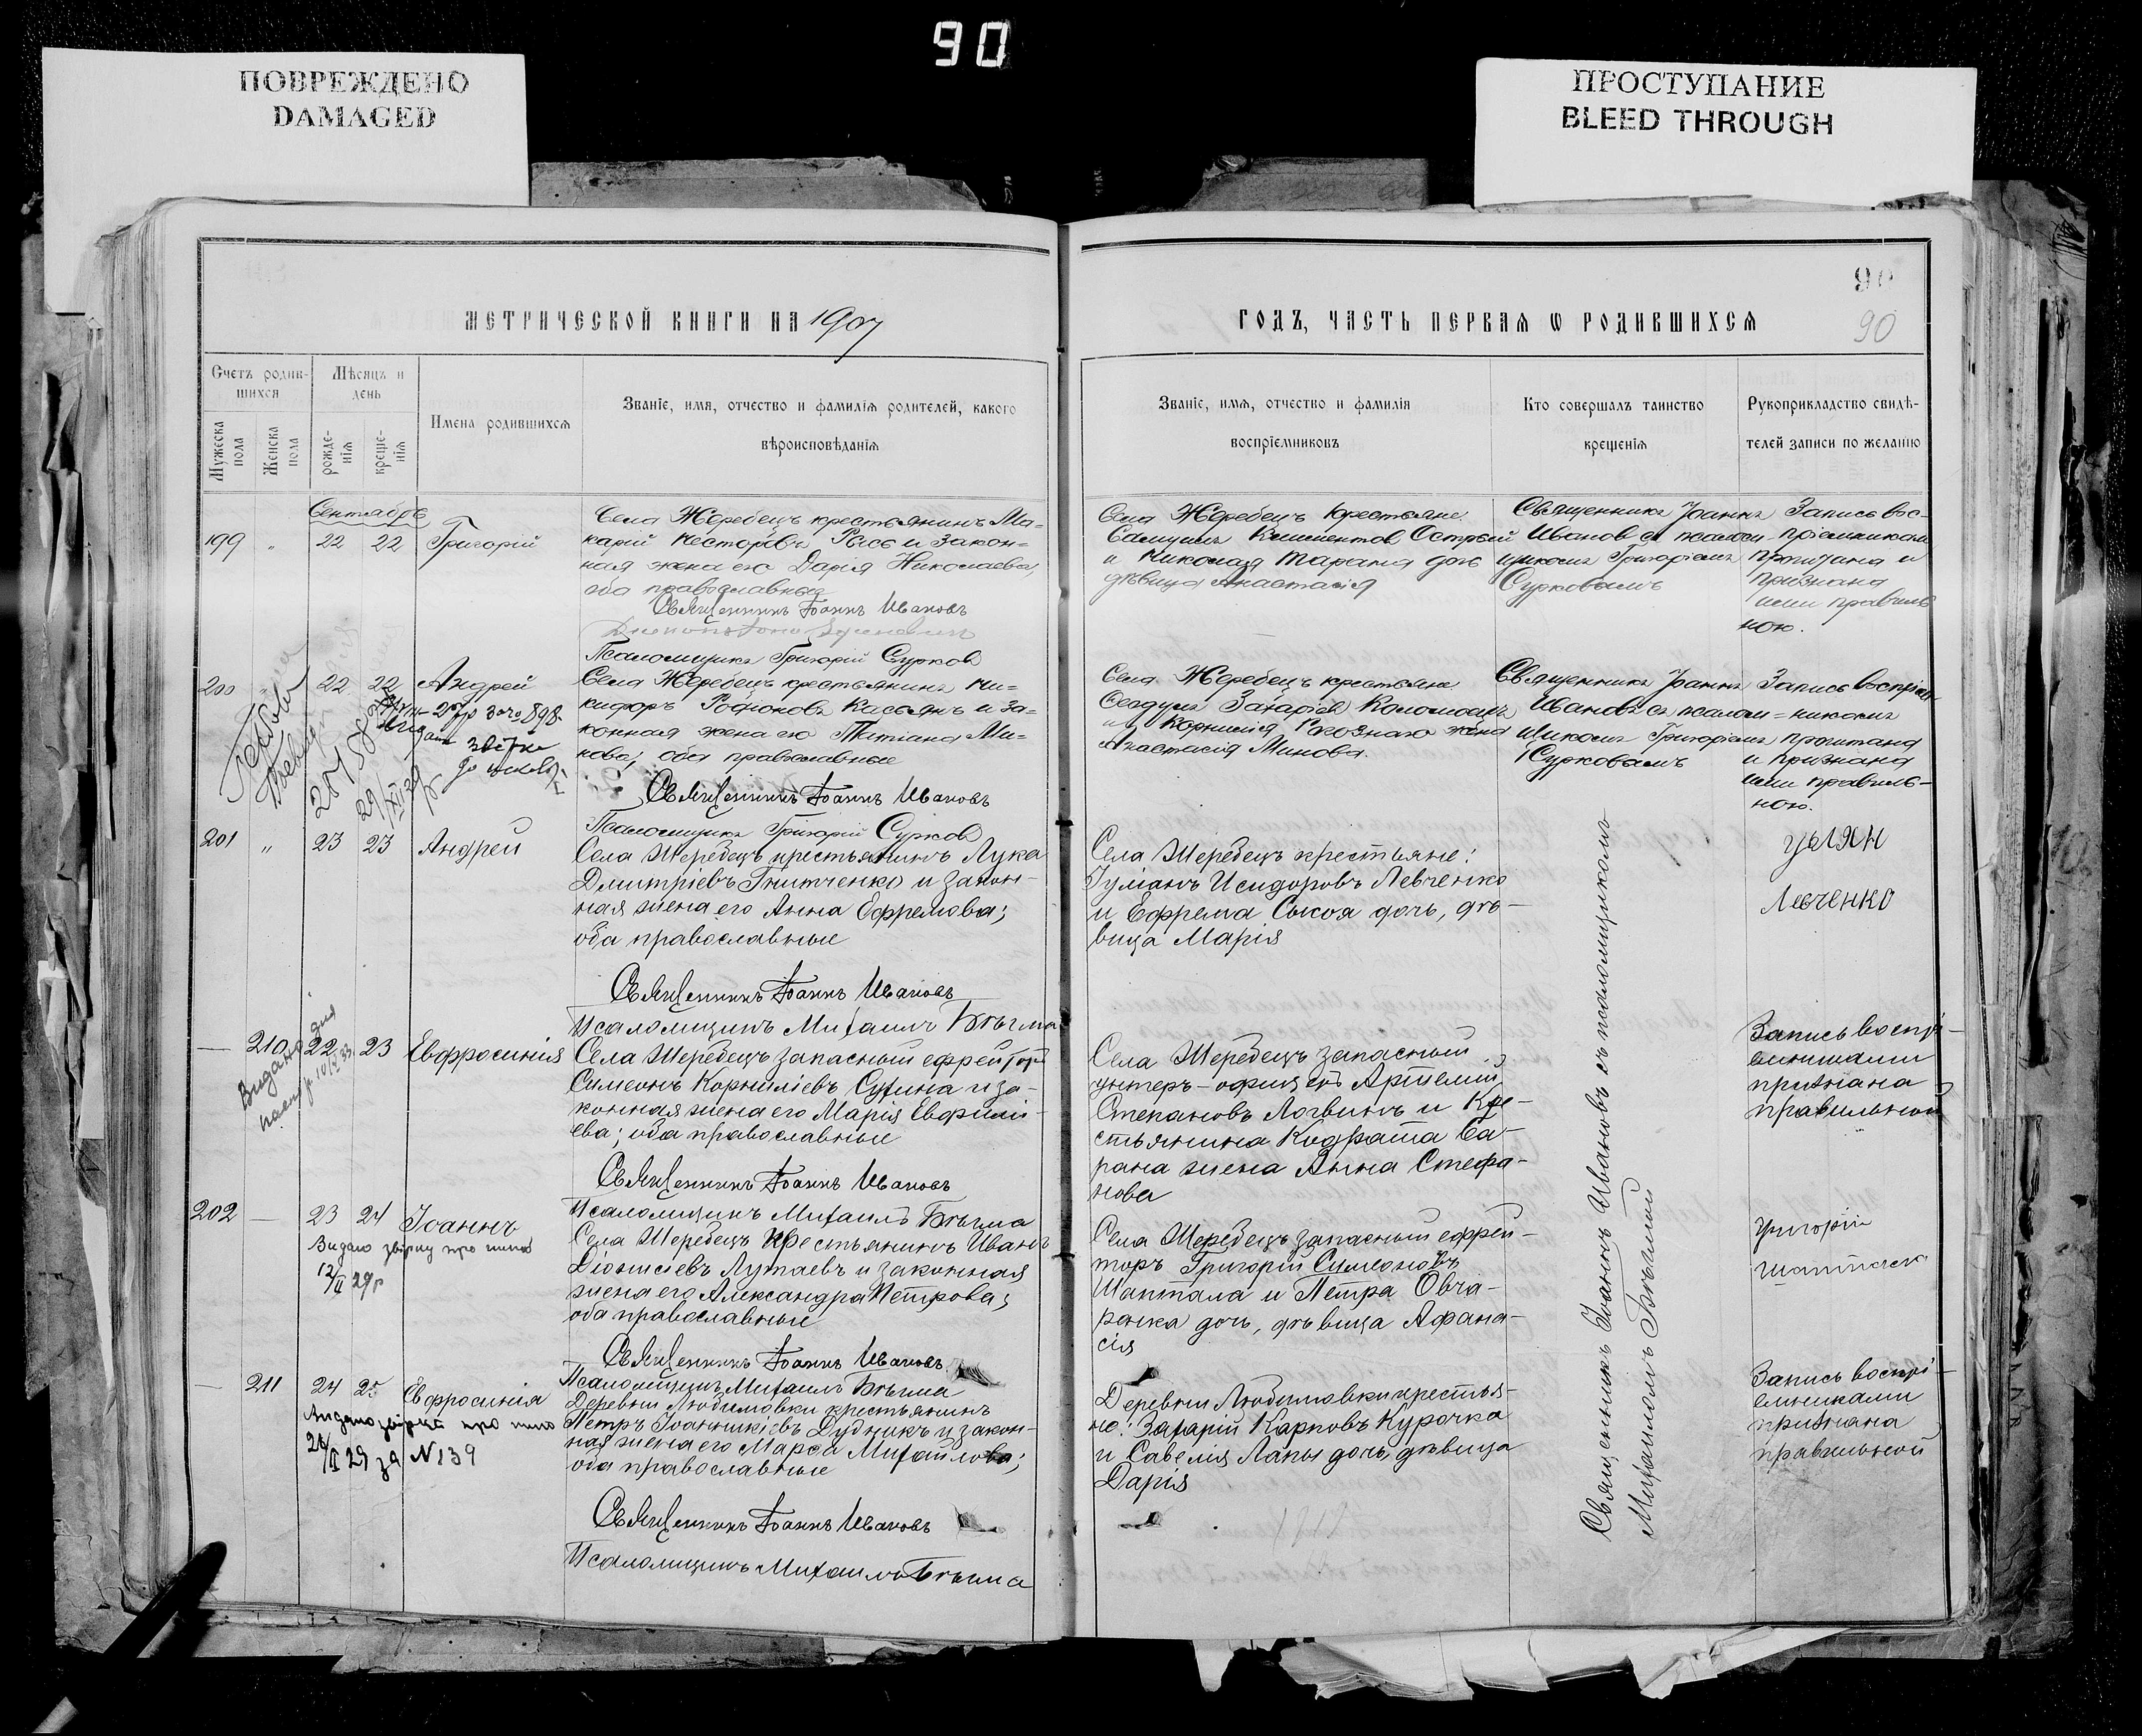 90
ПОВРЕЖДЕНО
DAMAGED
ПРОСТУПАНИЕ
BLEED THROUGH
90
90
МЕТРИЧЕСКОЙ КНИГИ НА 1907
ГОДЪ, ЧАСТЬ ПЕРВАЯ Ѡ РОДИВШИХСѦ
Счетъ родив-
шихся
Мужеска
пола
Женска
пола
Мѣсяцъ и
день
рожде-
нія
креще-
нія
Имена родившихсѧ
Званіе, имя, отчество и фамиліѧ родителей, какого
вѣроисповѣданіѧ
Званіе, имѧ, отчество и фамиліѧ
воспріємниковъ
Кто совершалъ таинство
крещеніѧ
Рукоприкладство свидѣ-
телей записи по желанію
Сентябрь
199 " 22 22 Григорій
Села Жеребецъ крестьянинъ Ма=
карій Несторовъ Рысь и закон=
ная жена его Дарія Николаева,
оба православные
Священникъ Іоаннъ Ивановъ
Псаломщикъ Григорій Сурков
Села Жеребецъ крестьяне
и Николая Тарана дочь
дѣвица Анастасія
Священникъ Іоаннъ
Ивановъ съ псалом-
щикомъ Григоріемъ
Сурковымъ
Запись вос-
пріемниками
прочитана и
признана
ими правиль
ною.
200 " 22 22 Андрей
Села Жеребецъ крестьянинъ Ни=
кифоръ Родіоновъ Касьянъ и за=
конная жена его Татіана Ми-
нова; оба православные
Священникъ Іоаннъ Ивановъ
Псаломщикъ Григорій Сурков
Села Жеребецъ крестьяне
Захаріев Коломоецъ
и Корнилія жена
Анастасія Минова.
Священникъ Іоаннъ
Ивановъ съ псалом=
щикомъ Григоріемъ
Сурковымъ
Запись воспріем-
никами
прочитана
и признана
ими правиль-
ною.
201 " 23 23 Андрей
Села Жеребецъ крестьянинъ Лука
Дмитріевъ Гнитченко и закон-
ная жена его Анна Ефремова;
оба православные
Священникъ Іоаннъ Ивановъ
Псаломщикъ Михаилъ Бѣгма
Села Жеребецъ крестьяне:
Іуліанъ Исидоровъ Левченко
и Ефрема Сыкоя дочь, дѣ-
вица Марія
улян
Левченко
— 210 22 23 Евфросинія
Села Жеребецъ запасный ефрейтор
Симеонъ Корниліевъ Сухина и за-
конная жена его Марія Евфимі-
ева; оба православные
Священникъ Іоаннъ Ивановъ
Псаломщикъ Михаилъ Бѣгма
Села Жеребецъ запасный
унтеръ-офицеръ Артемій
Степановъ Логвинъ и Кре-
стьянина Кодрата Ба-
рана жена Анна Стефа-
нова
Запись воспрі-
емниками
признана
правильной
202 — 23 24 Іоаннъ
12/II 29р
Села Жеребецъ крестьянинъ Иванъ
Діонисіевъ Лутаевъ и законная
жена его Александра Петрова;
оба православные
Священникъ Іоаннъ Ивановъ
Псаломщикъ Михаилъ Бѣгма
Села Жеребецъ запасный ефрей-
торъ Григорій Симеоновъ
Шаптала и Петра Овча-
ренка дочь, дѣвица Афана-
сія
Григорій
Шаптала
— 211 24 25 Евфросинія
26/II 29 за N139
Деревни Любимовки крестьянинъ
Петръ Іоанникіевъ Дудникъ и закон-
ная жена его Марѳа Михайлова;
оба православные
Священникъ Іоаннъ Ивановъ
Псаломщикъ Михаилъ Бѣгма
Деревни Любимовки крестья-
не: Захарій Карповъ Курочка
и Савелія Лапы дочь, дѣвица
Дарія
Запись воспрі-
емниками
признана
правильной
Священникъ Іоаннъ Ивановъ съ псаломщикомъ
Михаиломъ Бѣгмой